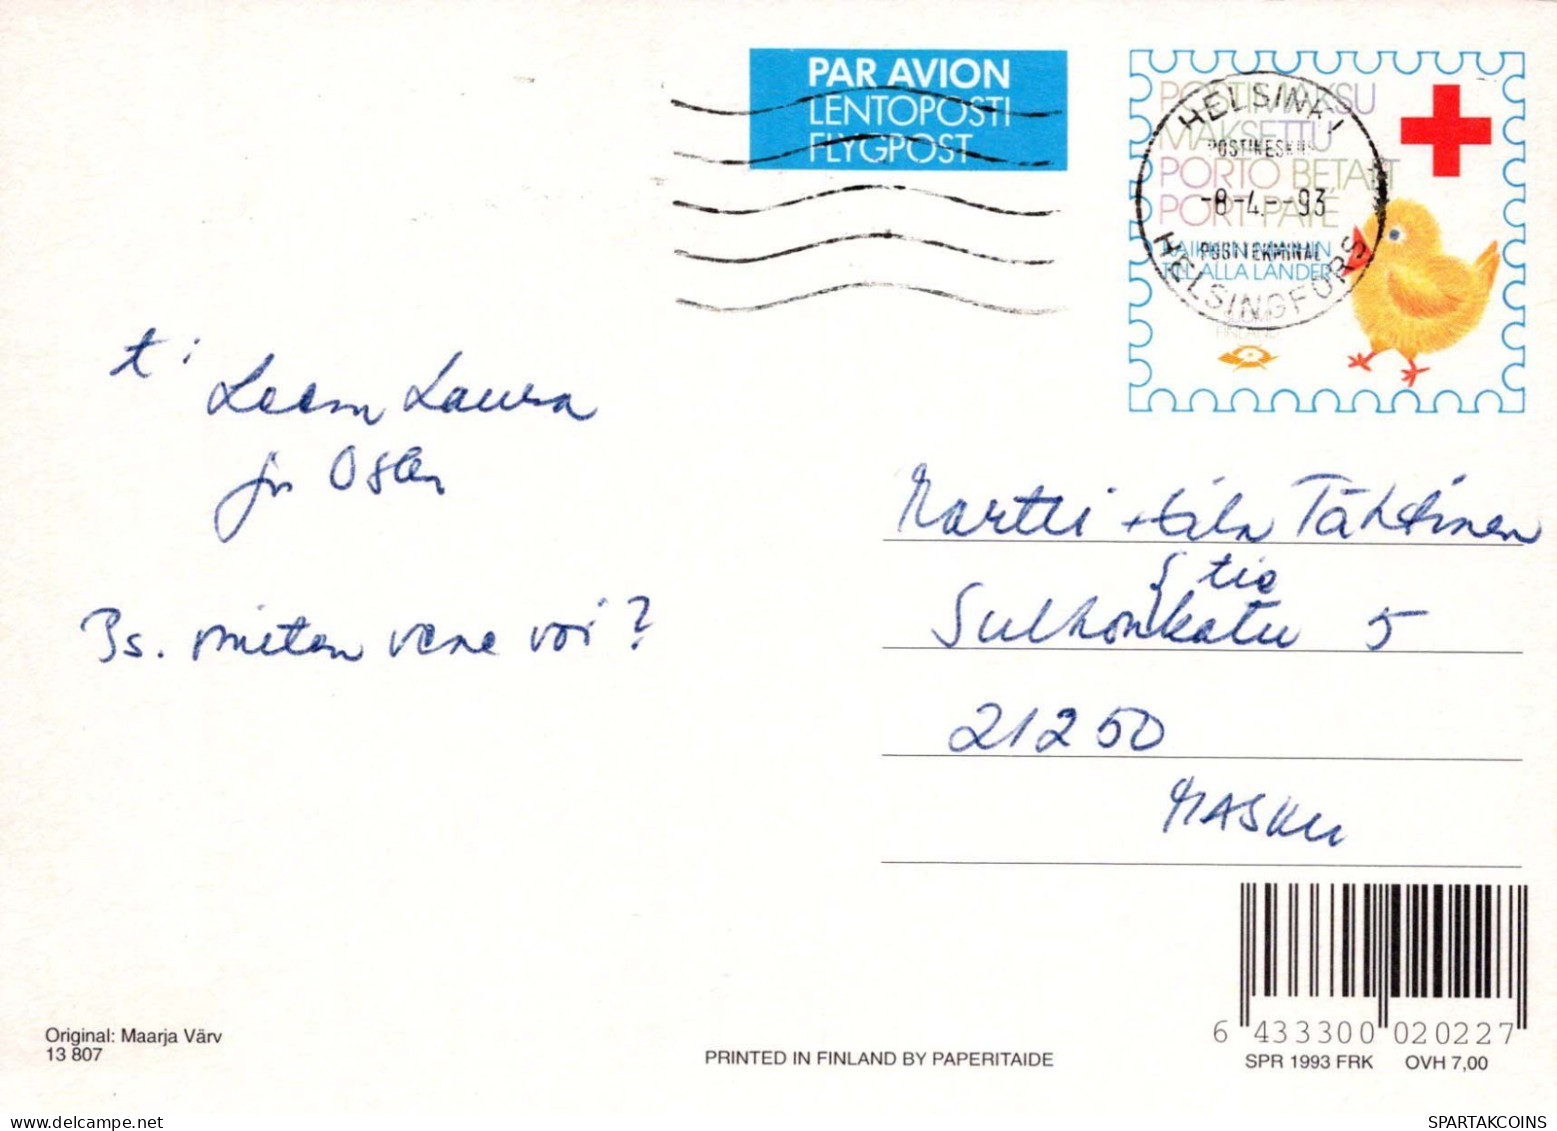 PAR AVION
LENTOPOSTI
FLYGPOST
POSTIMAKSU
MAKSETTU
PORTO BETALT
PORT PAYÉ
KAIKKIIN MAIHIN
TILL ALLA LÄNDER
SUOMI
FINLAND
HELSINKI
-8-4.--93
POSTTERMINAL
HELSINGFORS
t:
Leena Laura
ja
Ps. miten vene voi?
Martti Tähtinen
Sulhonkatu 5
tie
21250
MASKU
Original: Maarja Värv
13 807
PRINTED IN FINLAND BY PAPERITAIDE
6 433300 020227
SPR 1993 FRK OVH 7,00
SPARTAKCOINS